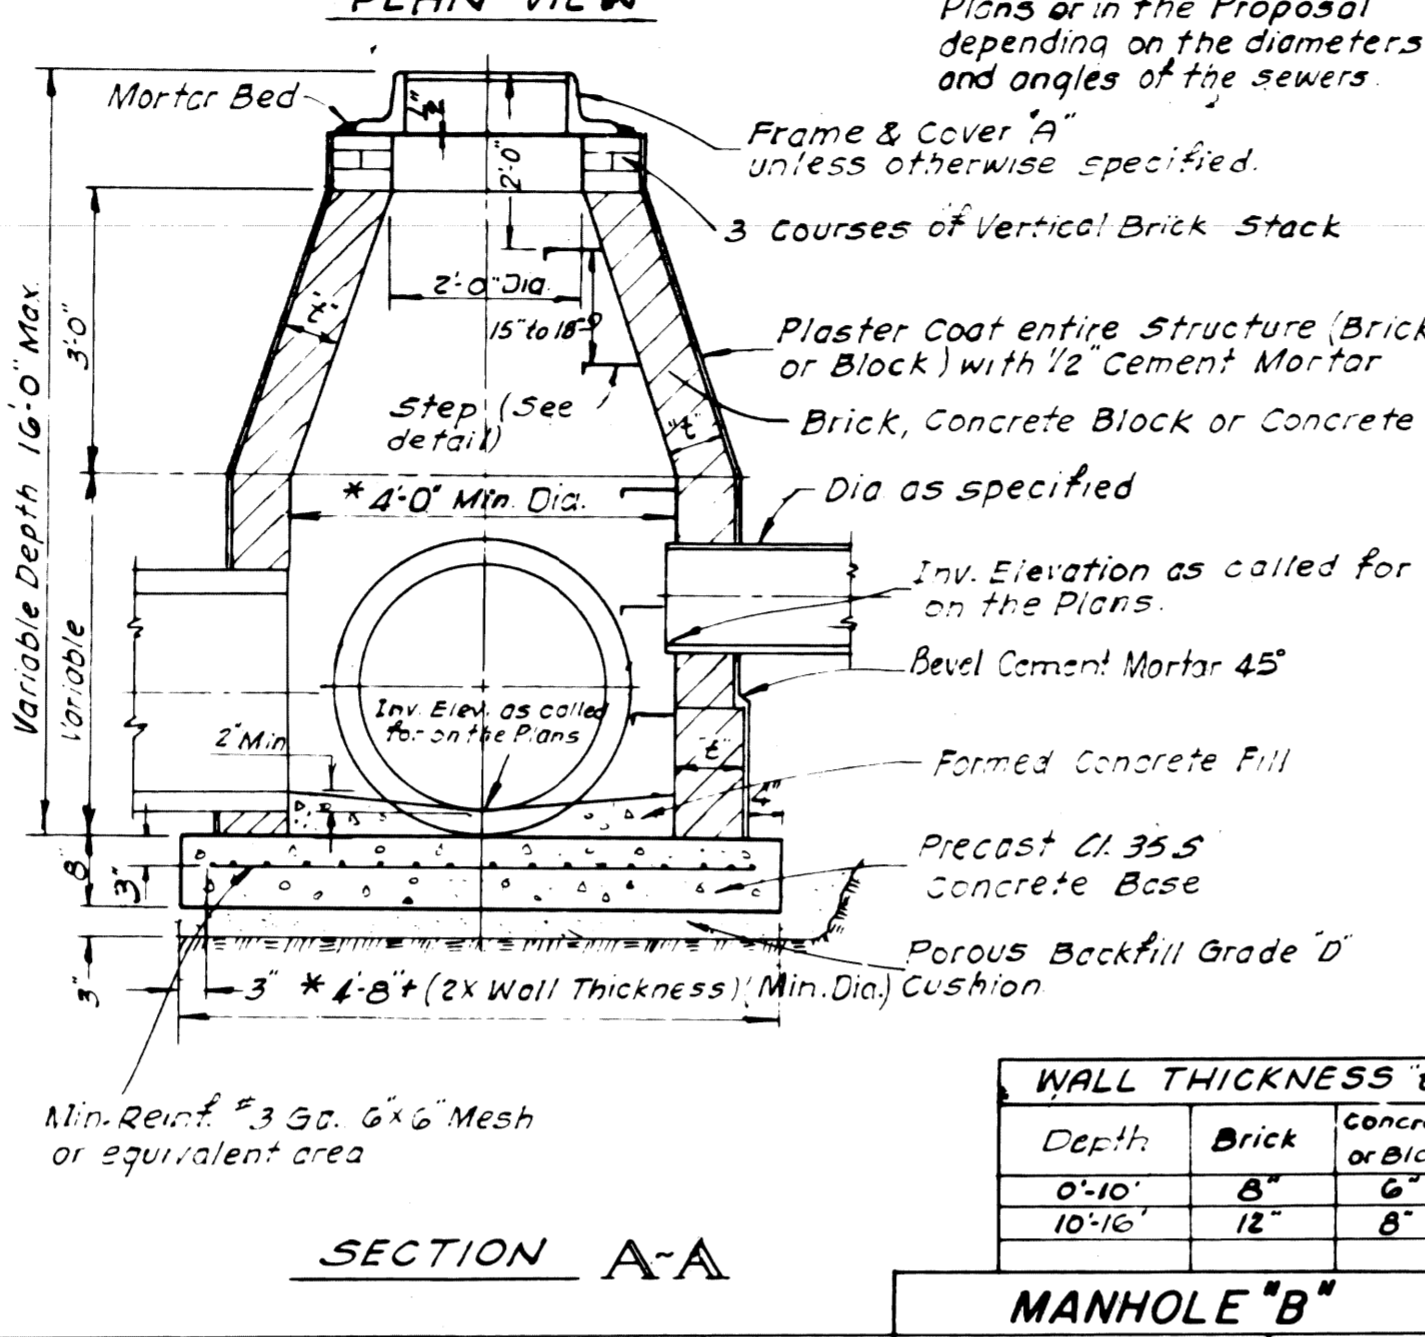 PLAN VIEW
Plans or in the Proposal
depending on the diameters
and angles of the sewers.
Mortar Bed
Frame & Cover "A"
unless otherwise specified.
2'-0"
3 Courses of Vertical Brick Stack
2'-0" Dia.
15" to 18"
"t"
Plaster Coat entire Structure (Brick
or Block) with 1/2" Cement Mortar
Step (See
detail)
Brick, Concrete Block or Concrete
"t"
Variable Depth 16'-0" Max.
3'-0"
Variable
* 4'-0" Min. Dia.
Dia as specified
Inv. Elevation as called for
on the Plans.
Bevel Cement Mortar 45°
Inv. Elev. as called
for on the Plans
2" Min
"t"
Formed Concrete Fill
4"
8"
3"
Precast Cl. 35 S
Concrete Base
3"
Porous Backfill Grade "D"
Cushion
3" * 4'-8" + (2X Wall Thickness) (Min. Dia.)
Min. Reinf. #3 Ga. 6"x6" Mesh
or equivalent area
SECTION A-A
WALL THICKNESS
Depth Brick
0'-10' 8" 6"
10'-16' 12" 8"
MANHOLE "B"